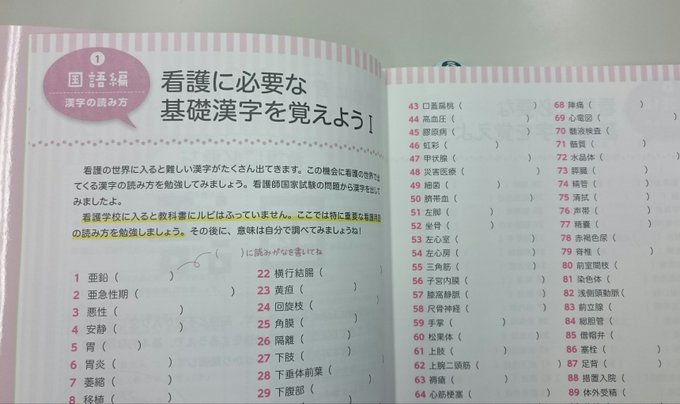 1
国語編
漢字の読み方
看護に必要な
基礎漢字を覚えようⅠ
看護の世界に入ると難しい漢字がたくさん出てきます。この機会に看護の世界で出
てくる漢字の読み方を勉強してみましょう。看護師国家試験の問題から漢字を出して
みましたよ。
看護学校に入ると教科書にルビはふっていません。ここでは特に重要な看護用語
の読み方を勉強しましょう。その後に、意味は自分で調べてみましょうね!
( )に読みがなを書いてね
1 亜鉛 ( )
2 亜急性期 ( )
3 悪性 ( )
4 安静 ( )
5 胃 ( )
6 胃炎 ( )
7 萎縮 ( )
8 移植 (
22 横行結腸 ( )
23 黄疸 ( )
24 回旋枝 ( )
25 角膜 ( )
26 隔離 ( )
27 下肢 ( )
28 下垂体前葉 ( )
29 下腹部 ( )
43 口蓋扁桃 ( )
44 高血圧 ( )
45 膠原病 ( )
46 虹彩 ( )
47 甲状腺 ( )
48 災害医療 ( )
49 細菌 ( )
50 臍帯血 ( )
51 左脚 ( )
52 坐骨 ( )
53 左心室 ( )
54 左心房 ( )
55 三角筋 ( )
56 子宮内膜 ( )
57 膝窩静脈 ( )
58 尺骨神経 ( )
59 手掌 ( )
60 松果体 ( )
61 上肢 ( )
62 上腕二頭筋 ( )
63 褥瘡 ( )
64 心筋梗塞 ( )
68 陣痛 ( )
69 心電図 ( )
70 髄液検査 ( )
71 髄質 ( )
72 水晶体 ( )
73 膵臓 ( )
74 精管 ( )
75 清拭 ( )
76 声帯 ( )
77 精嚢 ( )
78 赤褐色尿 (
79 脊椎 (
80 前室間枝 (
81 染色体 (
82 浅側頭動脈 (
83 前立腺 (
84 総胆管 (
85 僧帽弁 (
86 塞栓 (
87 足背 (
88 措置入院 (
89 体外受精 (